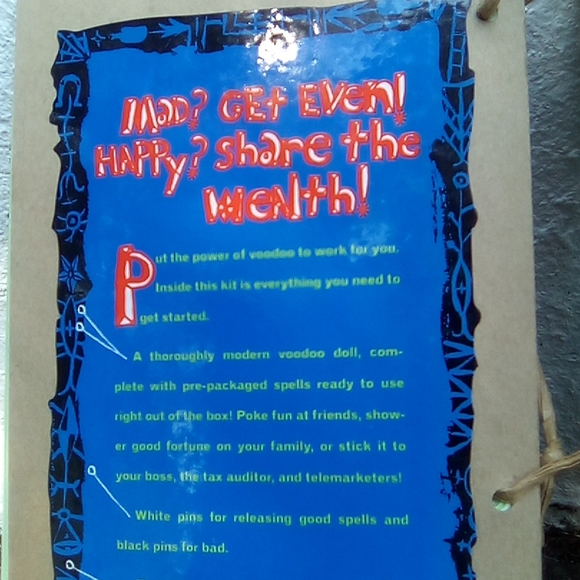 MAD? GET EVEN!
HAPPY? SHARE the
WEALth!
Put the power of voodoo to work for you.
Inside this kit is everything you need to
get started.
A thoroughly modern voodoo doll, com-
plete with pre-packaged spells ready to use
right out of the box! Poke fun at friends, show-
er good fortune on your family, or stick it to
your boss, the tax auditor, and telemarketers!
White pins for releasing good spells and
black pins for bad.